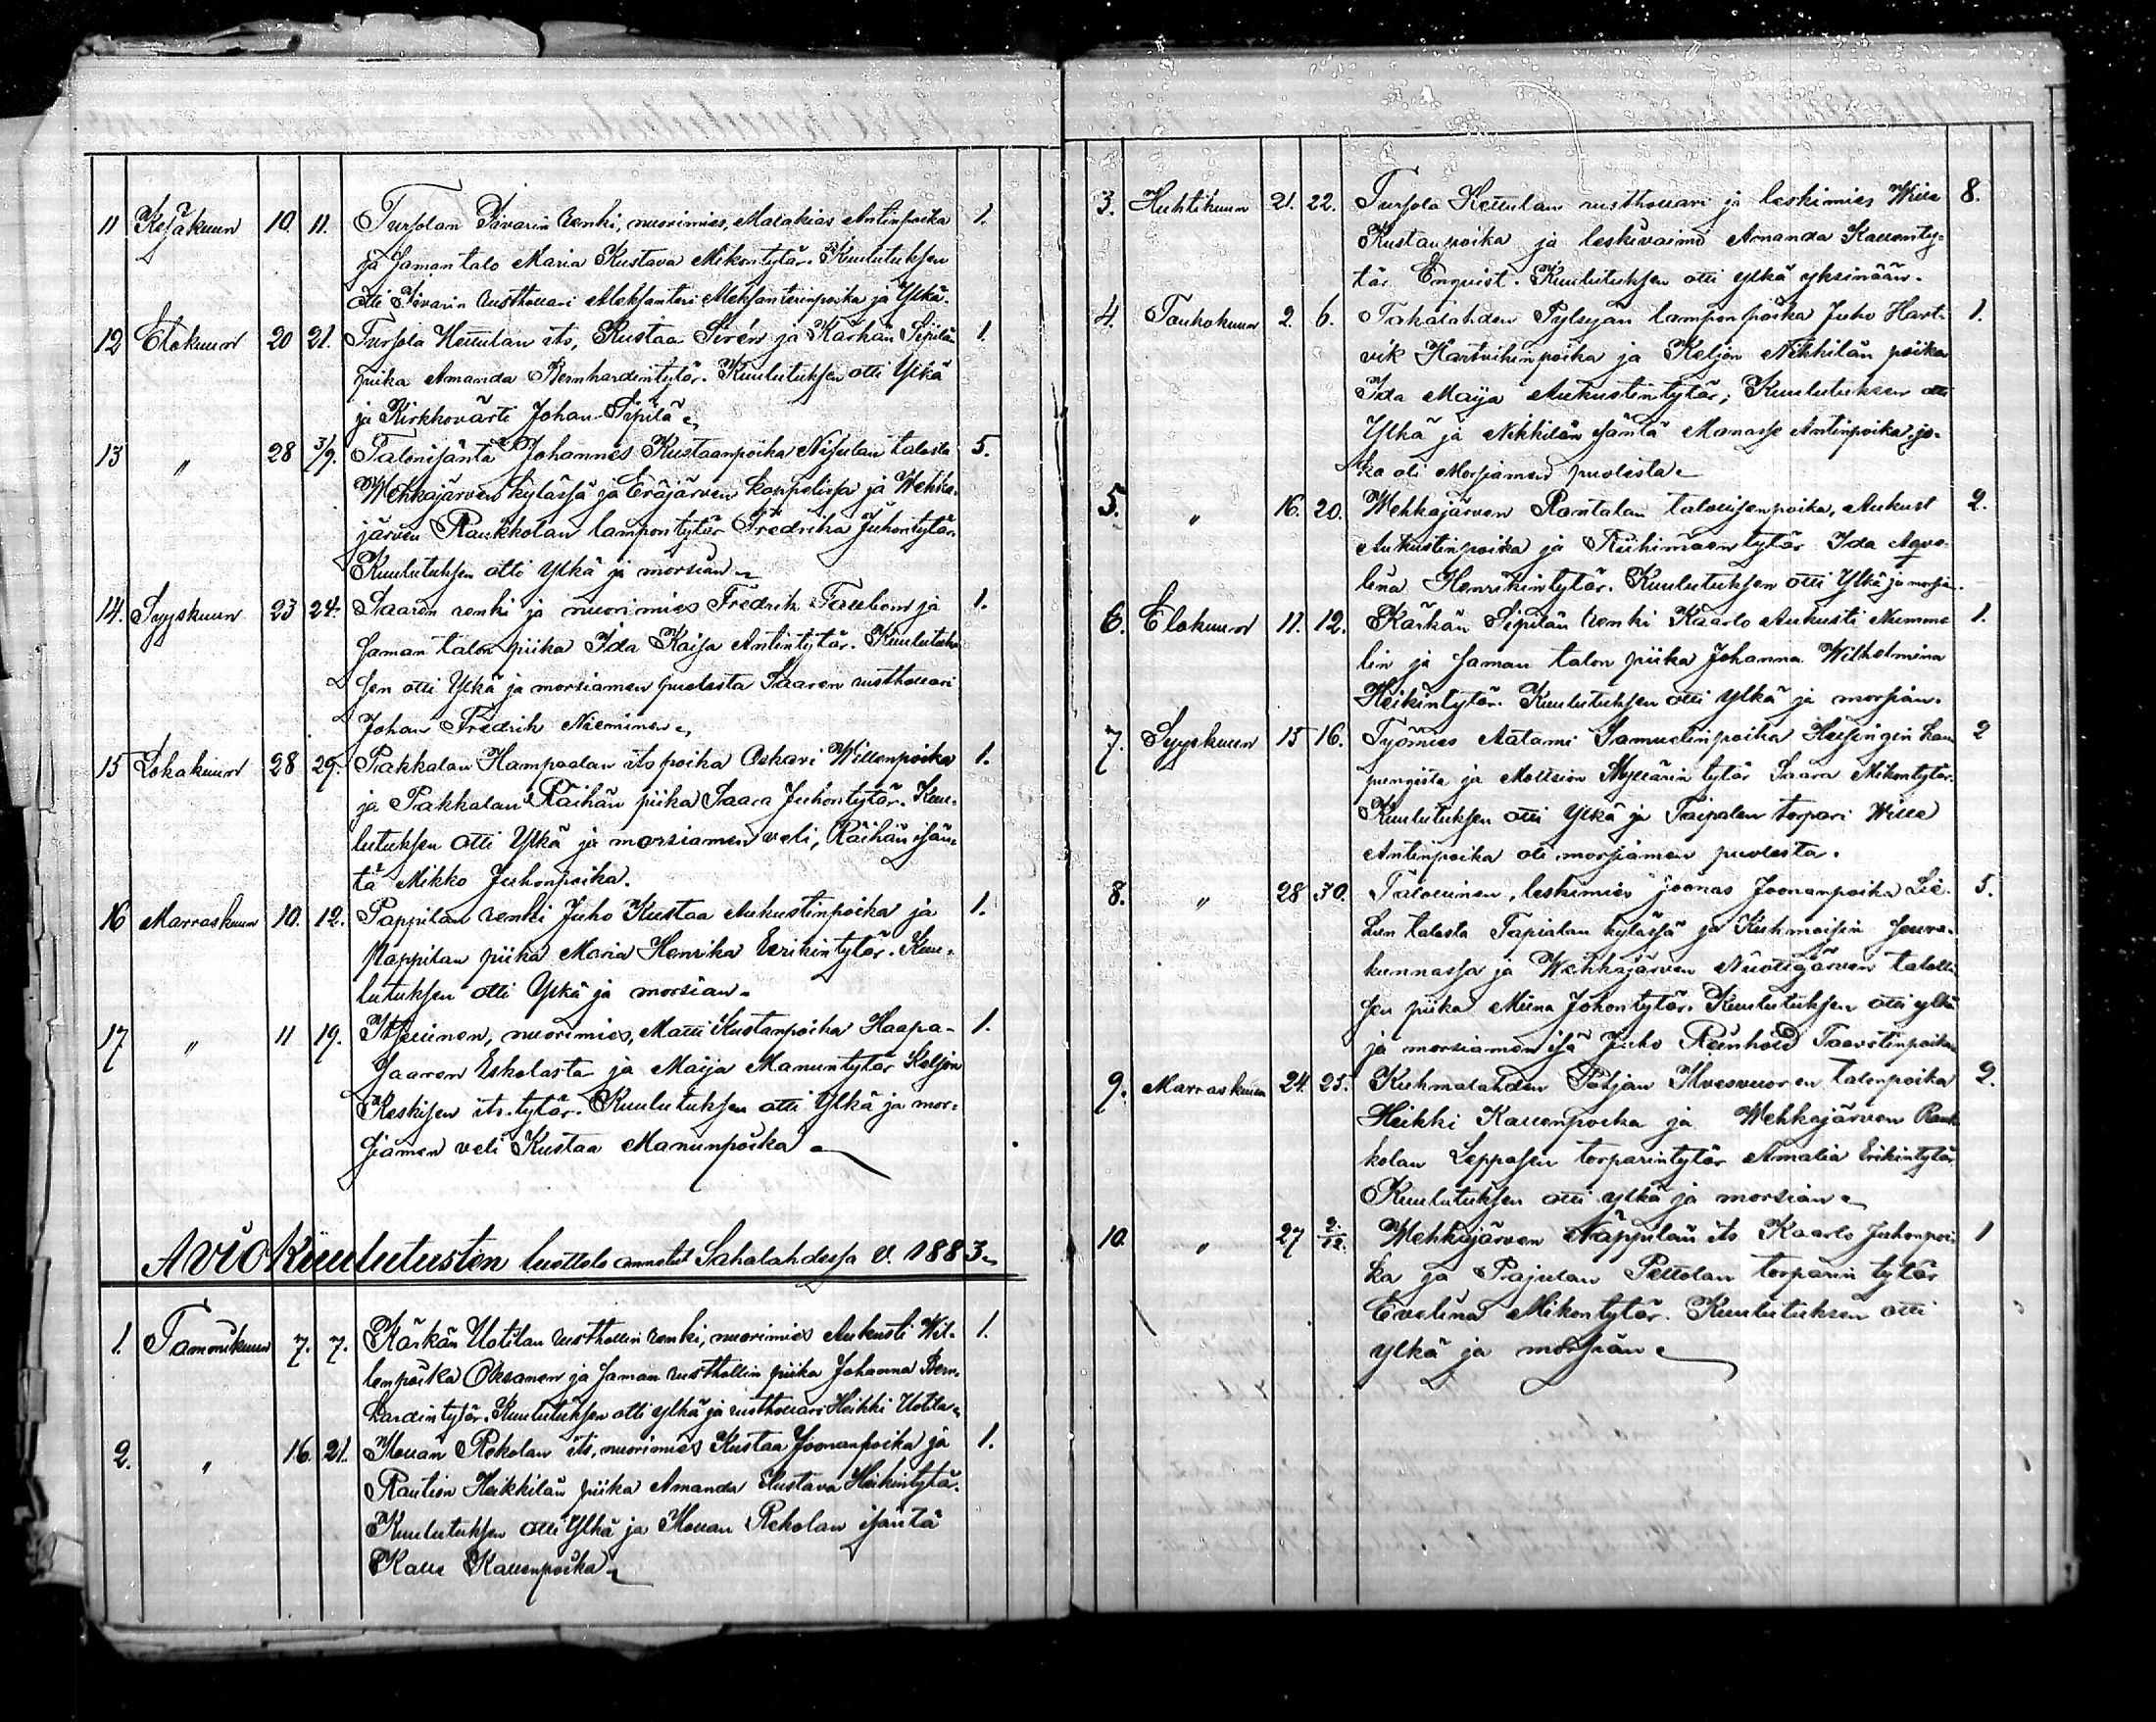 11 Kesäkuun 10. 11. Tursolan Iivarin renki, nuorimies, Malakias Antinpoika 1.
ja saman talo Maria Kustava Mikontytär. Kuulutuksen
otti Iivarin rusthollari Aleksanteri Aleksanterinpoika ja Ylkä.
12 Elokuun 20 21. Tursola Hollulan its, Kustaa Sirén ja Kärkän Sipilän 1.
piika Amanda Bernhardintytär. Kuulutuksen otti Ylkä
ja Kirkkovärti Johan Sipilä
13 " 28 3/9. Talonisäntä Johannes Kustaanpoika Nisulan talosta 5.
Wehkajärven kylässä ja Eräjärven kappelissa ja Wehka-
järven Raukkolan lampontytär Fredrika Juhontytär.
Kuulutuksen otti Ylkä ja morsian
14. Syyskuun 23 24. Saaren renki ja nuorimies Fredrik Tallbom ja 1.
saman talon piika Ida Kaisa Antintytär. Kuulutuk-
sen otti Ylkä ja morsiamen puolesta Saaren rusthollari
Johan Fredrik Nieminen
15 Lokakuun 28 29. Pakkalan Hampaalan its poika Oskari Willenpoika 1.
ja Pakkalan Räihän piika Saara Juhontytär. Kuu-
lutuksen otti Ylkä ja morsiamen veli, Räihän isän-
tä Mikko Juhonpoika.
16 Marraskuun 10. 12. Pappilan renki Juho Kustaa Aukustinpoika ja 1.
Pappilan piika Maria Henrika Eerikintytär. Kuu-
lutuksen otti Ylkä ja morsian.
17 " 11 19. Itsellinen, nuorimies, Matti Kustanpoika Haapa- 1.
saaren Eskolasta ja Maija Manuntytär Keljon
Keskisen its. tytär. Kuulutuksen otti Ylkä ja mor-
siamen veli Kustaa Manunpoika
Avio Kuulutusten luettelo annetut Sahalahdessa v. 1883
1. Tammikuun 7. 7. Kärkän Uotilan rusthollin renki, nuorimies Aukusti Wil- 1.
lenpoika Oksanen ja saman rusthollin piika Johanna Bern-
hardintytär. Kuulutuksen otti ylkä ja rusthollari Heikki Uotila
2. " 16. 21. Moltian Rekolan its, nuorimies Kustaa Joonanpoika ja 1.
Raution Heikkilän piika Amanda Kustava Heikintytär.
Kuulutuksen otti Ylkä ja Rekolan isäntä
Kalle Kallenpoika
3. Huhtikuun 21. 22. Tursola Hollulan rusthollari ja leskimies Wille 8.
Kustanpoika ja leskivaimo Amanda Kallenty-
tär Enqvist. Kuulutuksen otti ylkä yksinään.
4. Toukokuun 2. 6. Takalahden Pylsyjan lamponpoika Juho Hart- 1.
vik Hartvikinpoika ja Keljon Nikkilän piika
Ida Maija Aukustintytär; Kuulutuksen otti
Ylkä ja Nikkilän isäntä Manasse Antinpoika, jo-
ka oli Morsiamen puolesta
5. " 16. 20. Wehkajärven Rantalan talollisenpoika, Aukust 2.
Aukustinpoika ja Riihimäen tytär Ida Agvo-
liina Henrikintytär. Kuulutuksen otti Ylkä ja morsia.
6. Elokuun 11. 12. Kärkän Sipilän renki Kaarlo Aukusti Numme- 1.
lin ja saman talon piika Johanna Wilhelmina
Heikintytär. Kuulutuksen otti Ylkä ja morsian.
7. Syyskuun 15 16. Työmies Aatami Samuelinpoika Helsingin kau- 2
pungista ja Moltsion Myllärin tytär Saara Mikontytär.
Kuulutuksen otti Ylkä ja Taipalen torpari Wille
Antinpoika oli morsiamen puolesta.
8. " 28 30. Talollinen, leskimies Joonas Joonanpoika 5.
talosta Tapialan kylässä ja Kuhmoisin seura-
kunnassa ja Wehkajärven Nuottijärven talolli-
sen piika Miina Johontytär. Kuulutuksen otti ylkä
ja morsiamen isä Juho Reinhold Taavetinpoika
9. Marraskuun 24. 25. Kuhmalahden Pohjan Ilvesvuoren talonpoika 2.
Heikki Kallenpoika ja Wehkajärven Rauk-
kolan Leppäsen torparintytär Amalia Erikintytär
Kuulutuksen otti ylkä ja morsian
10. " 27 2./12. Wehkajärven Näppilän its Kaarlo Juhonpoi- 1
ka ja Pajulan Peltolan torparin tytär
Evelina Mikontytär. Kuulutuksen otti
ylkä ja morsian